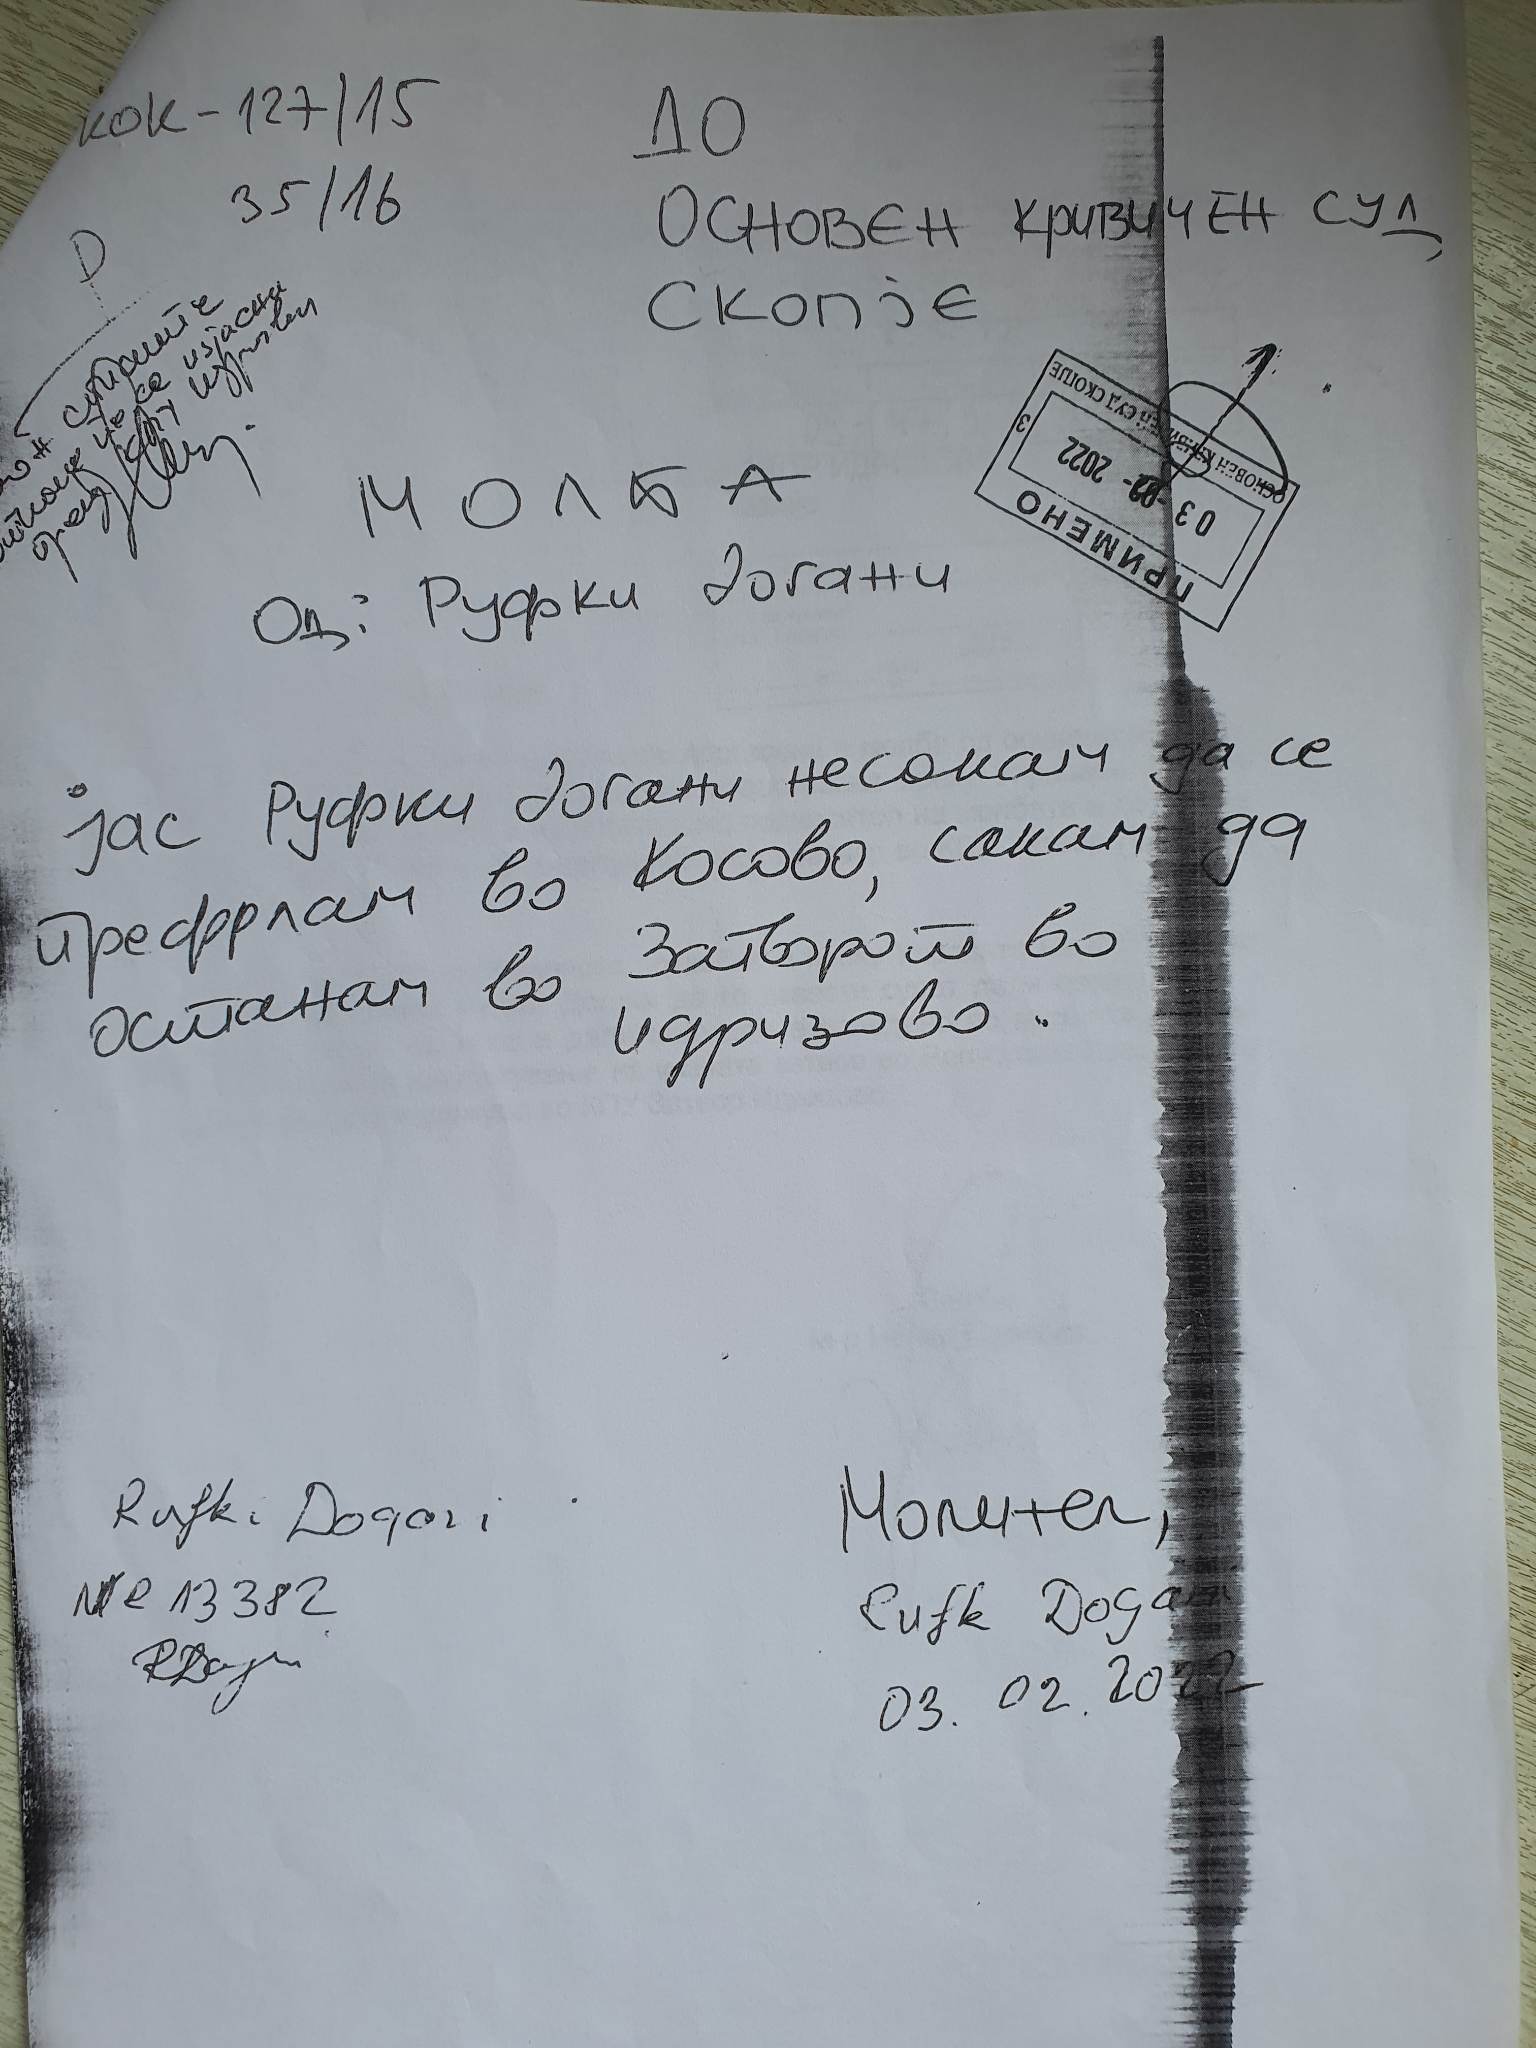 КОК-127/15
35/16
ДО
ОСНОВЕН КРИВИЧЕН СУД
СКОПЈЕ
Р
ОСНОВЕН КРИВИЧЕН СУД СКОПЈЕ
3
03 -02- 2022
ПРИМЕНО
МОЛБА
Од: Руфки Догани
јас Руфки Догани несакам да се
префрлам во Косово, сакам да
останам во Затворот во
идризово.
Rufki Dogani
Молител,
13382
Rufk Dogani
03. 02. 2022